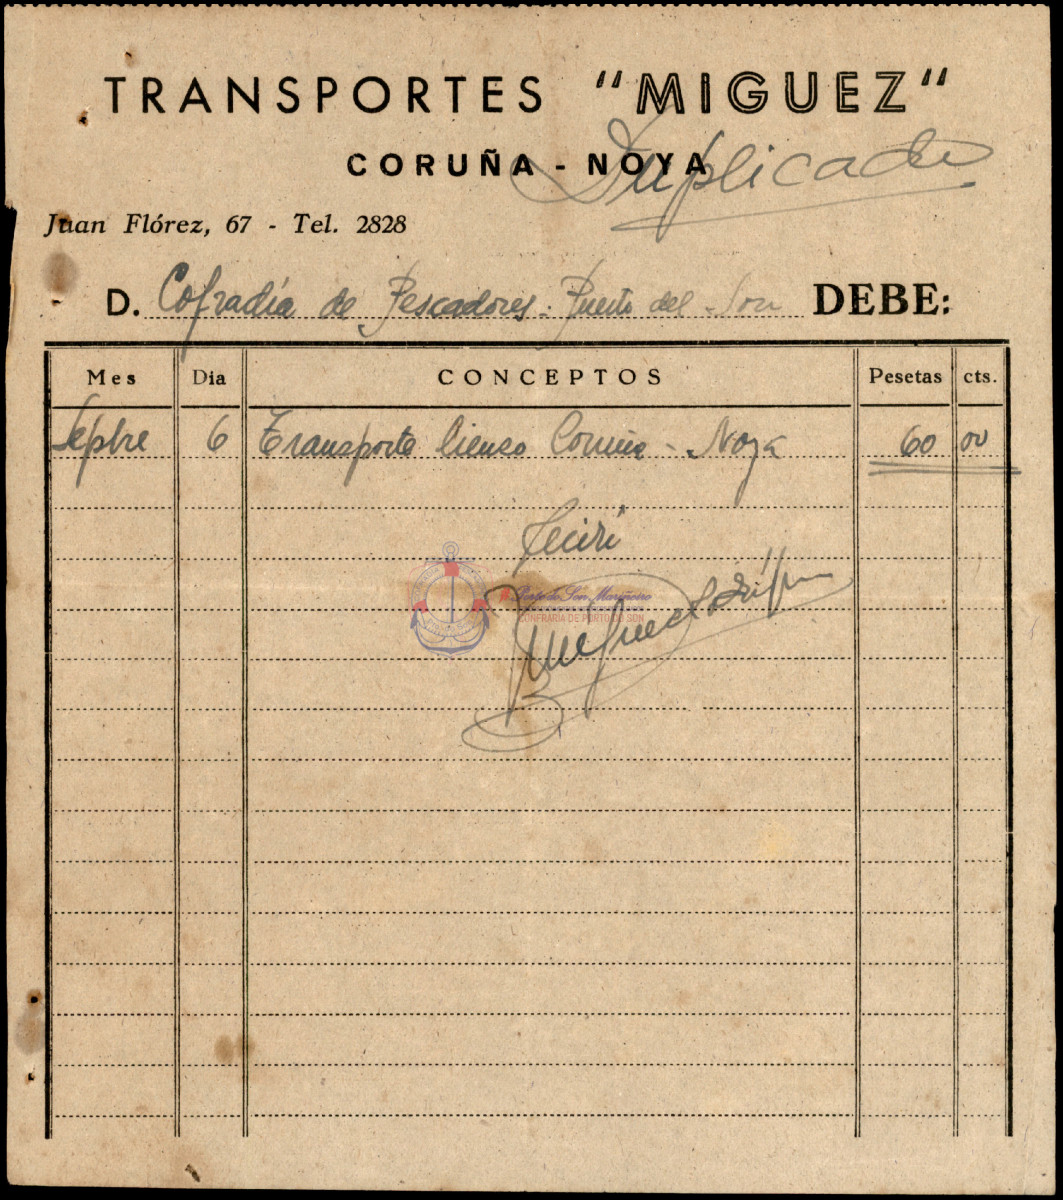 TRANSPORTES "MIGUEZ"
CORUÑA - NOYA
Duplicado
Juan Flórez, 67 - Tel. 2828
D. Cofradía de Pescadores - Puerto del Son DEBE:
Mes Dia CONCEPTOS Pesetas cts.
Sepbre 6 Transporte lienzo Coruña - Noya 60 00
Recibí
Porto do Son Mariñeiro
CONFRARÍA DE PORTO DO SON